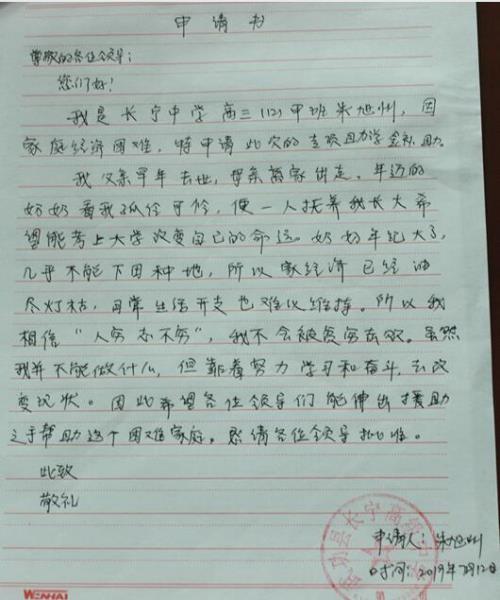 申请书
尊敬的各位领导:
您们好!
我是长宁中学高三(12)甲班朱旭州,因
家庭经济困难,特申请此次的专项助学金补助。
我父亲早年去世,母亲离家出走,年迈的
奶奶看我孤伶可怜,便一人抚养我长大希
望能考上大学改变自己的命运。奶奶年纪大了,
几乎不能下田种地,所以家经济已经油
尽灯枯,日常生活开支也难以维持。所以我
相信“人穷志不穷”,我不会被贫穷击败。虽然
我并不能做什么,但靠着努力学习和奋斗,去改
变现状。因此希望各位领导们能伸出援助
之手帮助这个困难家庭。恳请各位领导批准。
此致
敬礼
申请人:朱旭州
时间:2019年7月12日
武功县长宁高
WENHAI